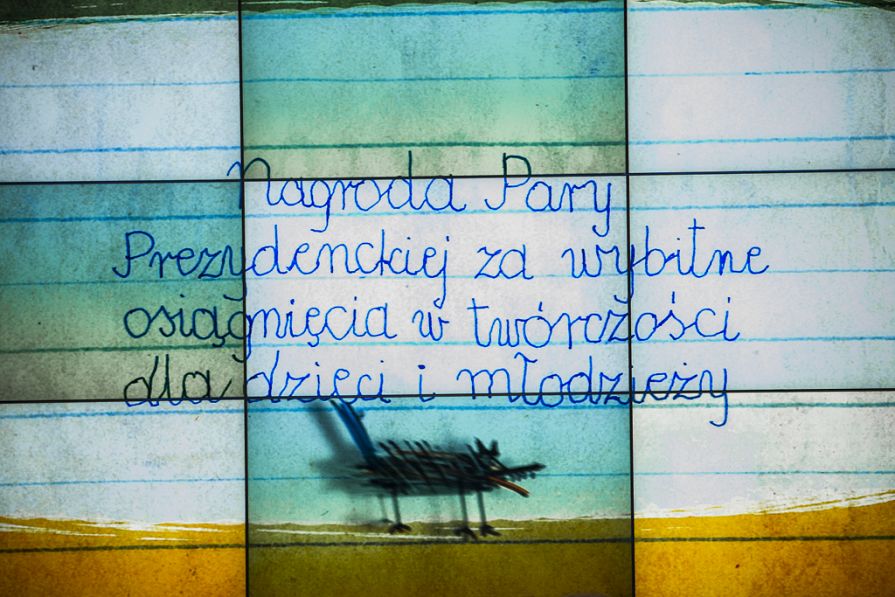 Nagroda Pary
Prezydenckiej za wybitne
osiągnięcia w twórczości
dla dzieci i młodzieży